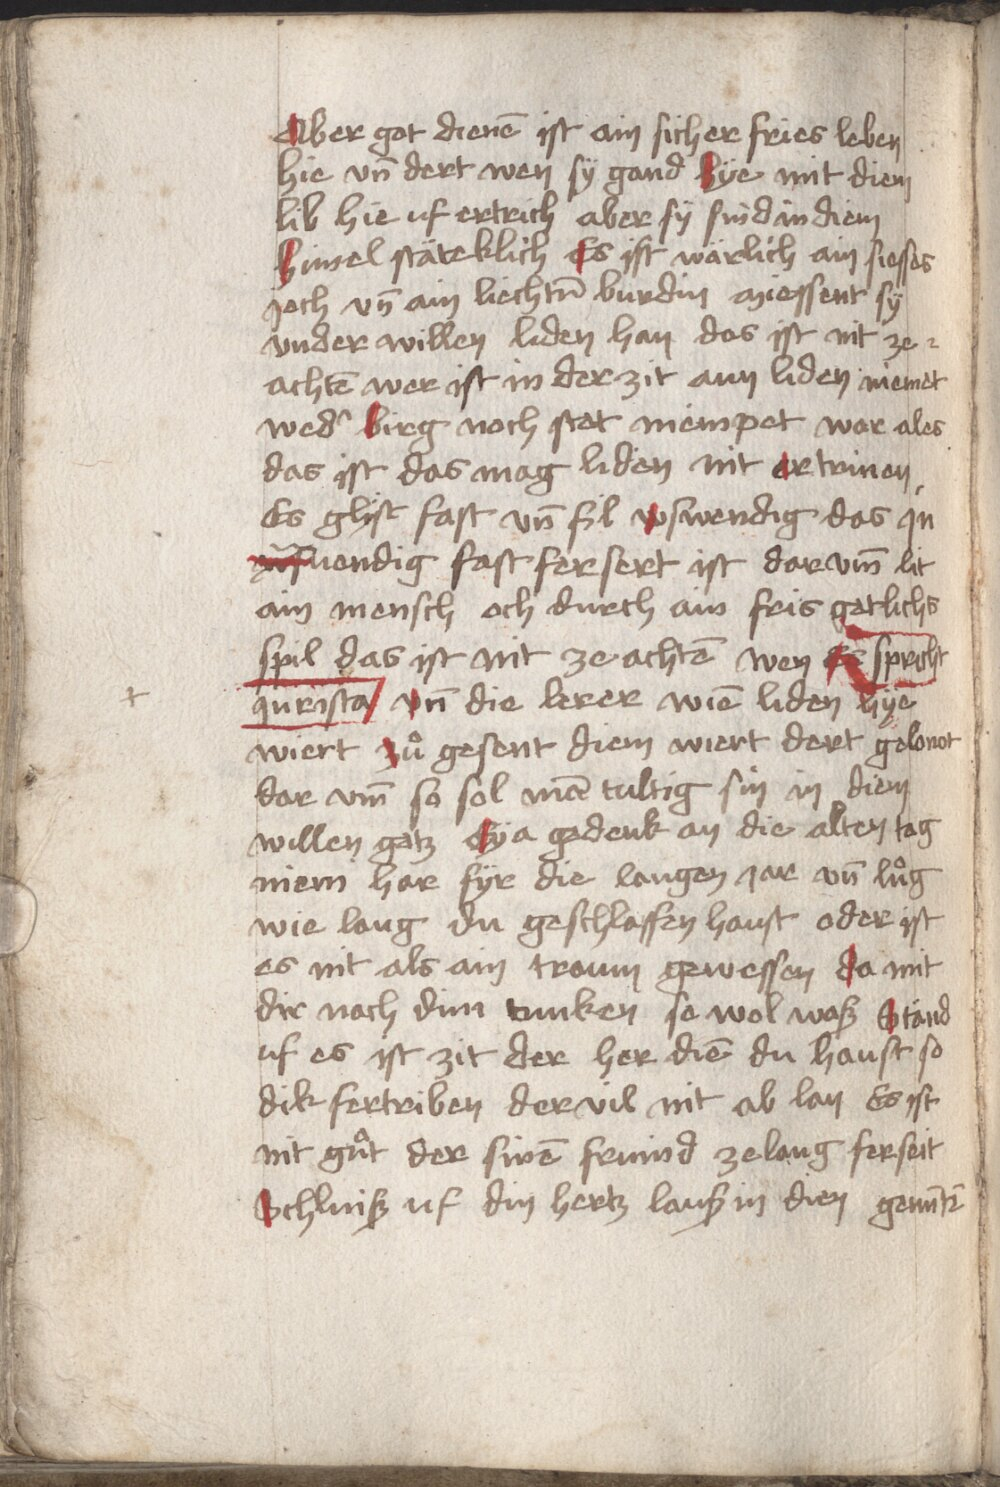 Aber got dienē ist ain sicher fries leben
hie vn̄ dert wen sÿ gand hÿe mit diem
lib hie uf ertrich aber sÿ sind in diem
himel stäteklich Es ist wärlich ain siesses
joch vn̄ ain liechtn̄ burdin miessent sÿ
vnder willen liden han das ist nit ze
achtē wer ist in der zit aun liden niemet
wedˀ birg noch stet niempet wor ales
das ist das mag liden nit ertrinen
Es glist fast vn̄ fil vswendig das jn
wendig fast fersert ist dar vm̄ lit
ain mensch och durch ain fris getlichs
spil das ist nit ze achtē wen es spricht
+ jurista vn̄ die lerer wiē liden hÿe
wiert zů gesent diem wiert dert gelonot
dar vm̄ so sol mā tultig sin in diem
willen gotz Eÿa gedenk an die alten tag
niem har fÿr die langen jar vn̄ lůg
wie lang du geschlaffen haust oder ist
es nit als ain troum gewessen da mit
dir noch dim tunken so wol waß Stand
uf es ist zit der her diē du haust so
dik fertriben der vil nit ab lan Es ist
nit gůt der sinē fruind ze lang ferseit
Schluiß uf din hertz lauß in dien